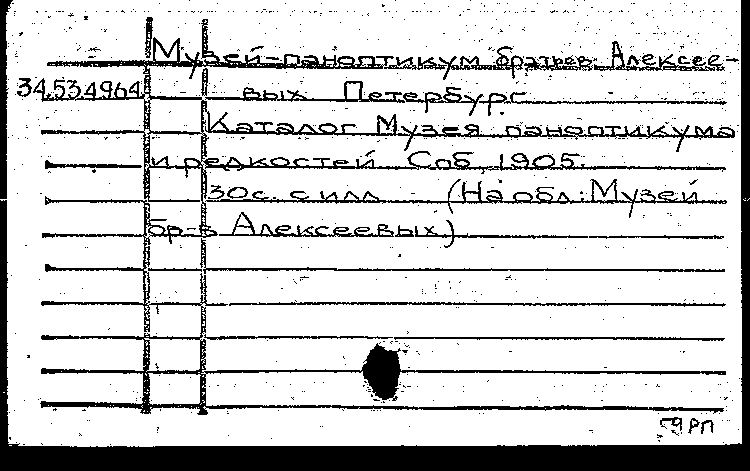 Музей-паноптикум братьев Алексее-
34.53.4964 вых Петербург.
Каталог Музея паноптикума
и редкостей Спб, 1905.
30с. с илл (На обл.: Музей
бр-в Алексеевых)
59 РП